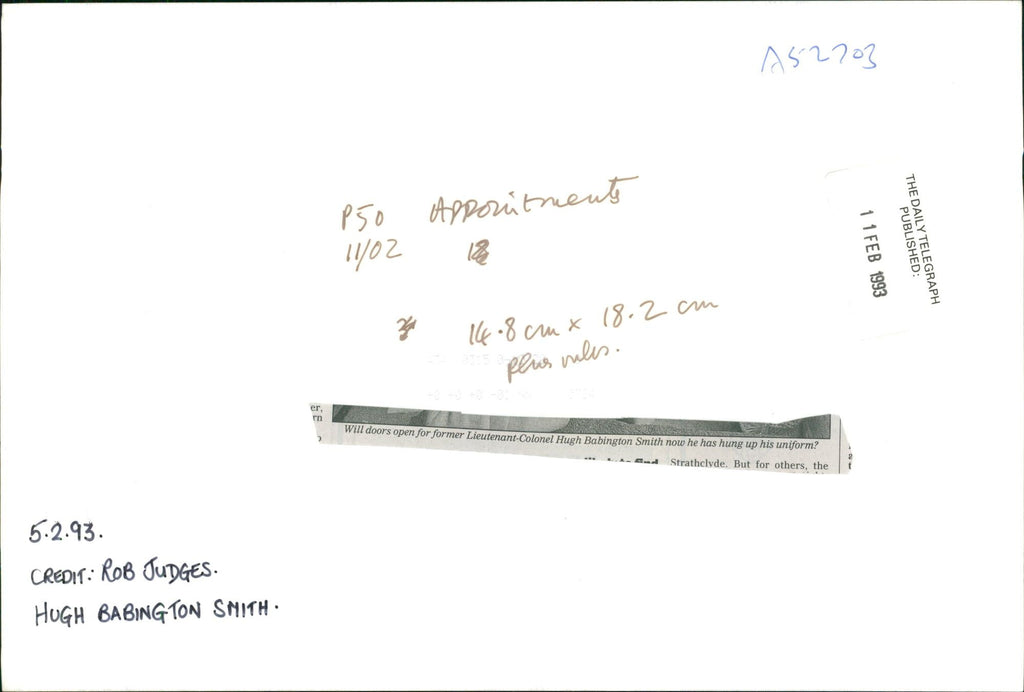 A52703
THE DAILY TELEGRAPH
PUBLISHED:
11 FEB 1993
P50 APPOintments
11/02
14.8 cm x 18.2 cm
plus rules.
er,
rn
Will doors open for former Lieutenant-Colonel Hugh Babington Smith now he has hung up his uniform?
Strathclyde. But for others, the
5.2.93.
CREDIT: ROB JUDGES.
HUGH BABINGTON SMITH.